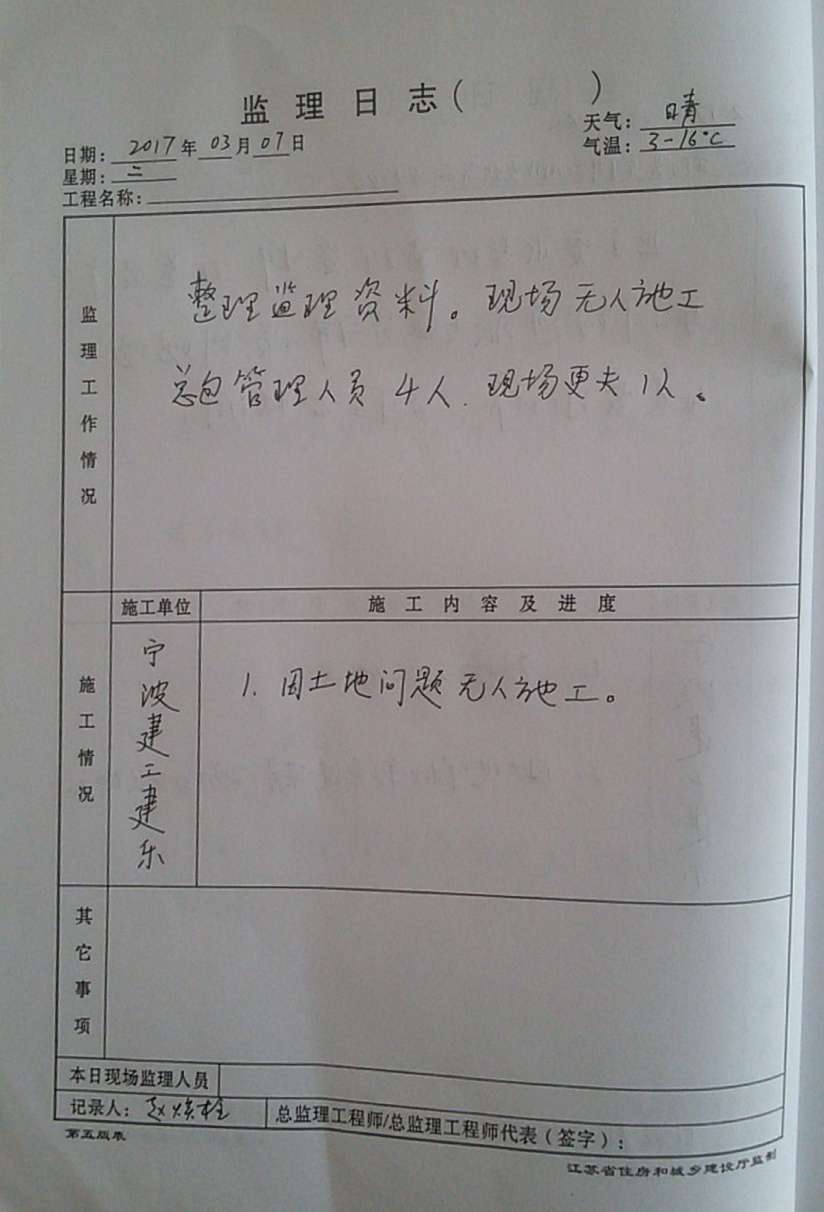 监理日志（ ）
日期：2017年03月07日
天气：晴
星期：二
气温：3-16℃
工程名称：
监理工作情况
整理监理资料。现场无人施工
总包管理人员4人.现场更夫1人。
施工情况
施工单位
施工内容及进度
宁波建工建乐
1.因土地问题无人施工。
其它事项
本日现场监理人员
记录人：赵焕柱
总监理工程师/总监理工程师代表（签字）：
第五版表
江苏省住房和城乡建设厅监制